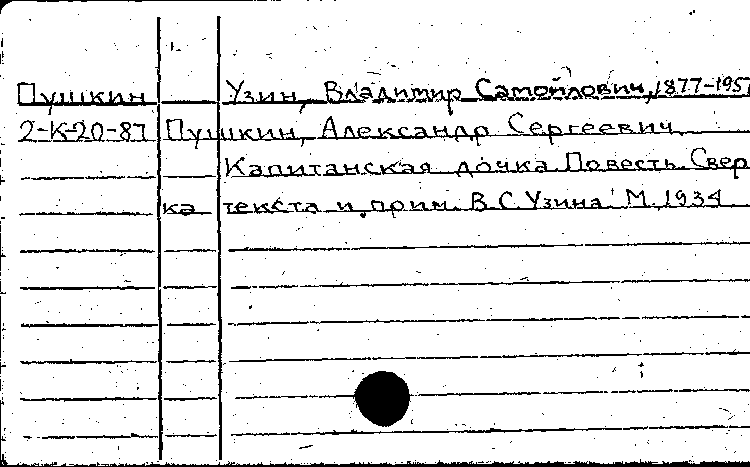 Пушкин Узин, Владимир Самойлович, 1877-1957
2-К-20-87 Пушкин, Александр Сергеевич
Капитанская дочка. Повесть. Свер
ка текста и прим. В.С. Узина. М. 1934